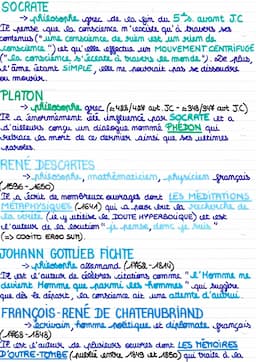 SOCRATE
→ philosophe grec de la fin du 5ème s. avant J.C
Il pense que la conscience n'existe qu'à travers ses
contenus ("une conscience de rien est un rien de
conscience") et qu'elle effectue un MOUVEMENT CENTRIFUGE
("la conscience s'éclate à travers le monde"). De plus,
l'âme étant SIMPLE, elle ne pourrait pas se dissoudre
ou mourir.
PLATON
→ philosophe grec (≈428/427 avt J.C - ≈348/347 avt J.C)
Il a énormément été influencé par SOCRATE et a
d'ailleurs conçu un dialogue nommé PHÉDON qui
retrace la mort de ce dernier ainsi que ses ultimes
paroles.
RENÉ DESCARTES
→ philosophe, mathématicien, physicien français
(1596 - 1650)
Il a écrit de nombreux ouvrages dont LES MÉDITATIONS
MÉTAPHYSIQUES (1641) qui a pour but la recherche de
la vérité (il y utilise le DOUTE HYPERBOLIQUE) et est
l'auteur de la locution "je pense, donc je suis"
(=> COGITO ERGO SUM).
JOHANN GOTTLIEB FICHTE
→ philosophe allemand (1762 - 1814)
Il est l'auteur de célèbres citations comme "l'Homme ne
devient Homme que parmi les hommes" qui suggère
que dès le départ, la conscience ait une attente d'autrui.
FRANÇOIS-RENÉ DE CHATEAUBRIAND
→ écrivain, homme politique et diplomate français
(1768 - 1848)
Il est l'auteur de plusieurs œuvres dont LES MÉMOIRES
D'OUTRE-TOMBE (publié entre 1849 et 1850) qui traite de la